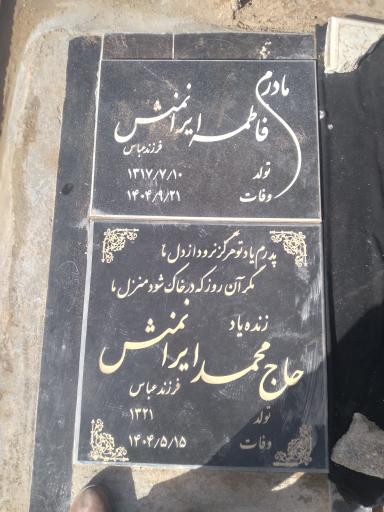 مادرم
فاطمه ایرانمنش
فرزند عباس
تولد ۱۳۱۷/۷/۱۰
وفات ۱۴۰۴/۹/۲۱
پدرم یاد تو هرگز نرود از دل ما
مگر آن روز که در خاک شود منزل ما
زنده یاد
حاج محمد ایرانمنش
فرزند عباس
تولد ۱۳۲۱
وفات ۱۴۰۴/۵/۱۵